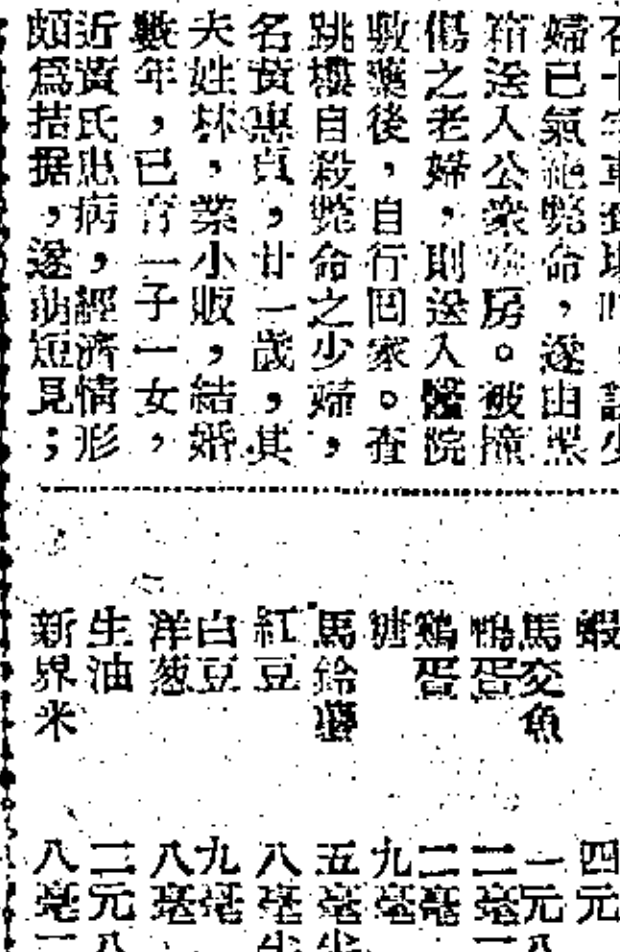 召十字車到場時，該少
婦已氣絕斃命，遂由黑
箱送入公衆殮房。被撞
傷之老婦，則送入醫院
敷藥後，自行回家。查
跳樓自殺斃命之少婦，
名黃惠貞，廿一歲，其
夫姓林，業小販，結婚
數年，已育一子一女，
近黃氏患病，經濟情形
頗爲拮据，遂萌短見；
蝦 四元
馬交魚 一元八
鴨蛋 二毫一
鷄蛋 二毫
糖 九毫
馬鈴薯 五毫半
紅豆 八毫半
白豆 九毫
洋葱 八毫
生油 二元八
新界米 八毫一